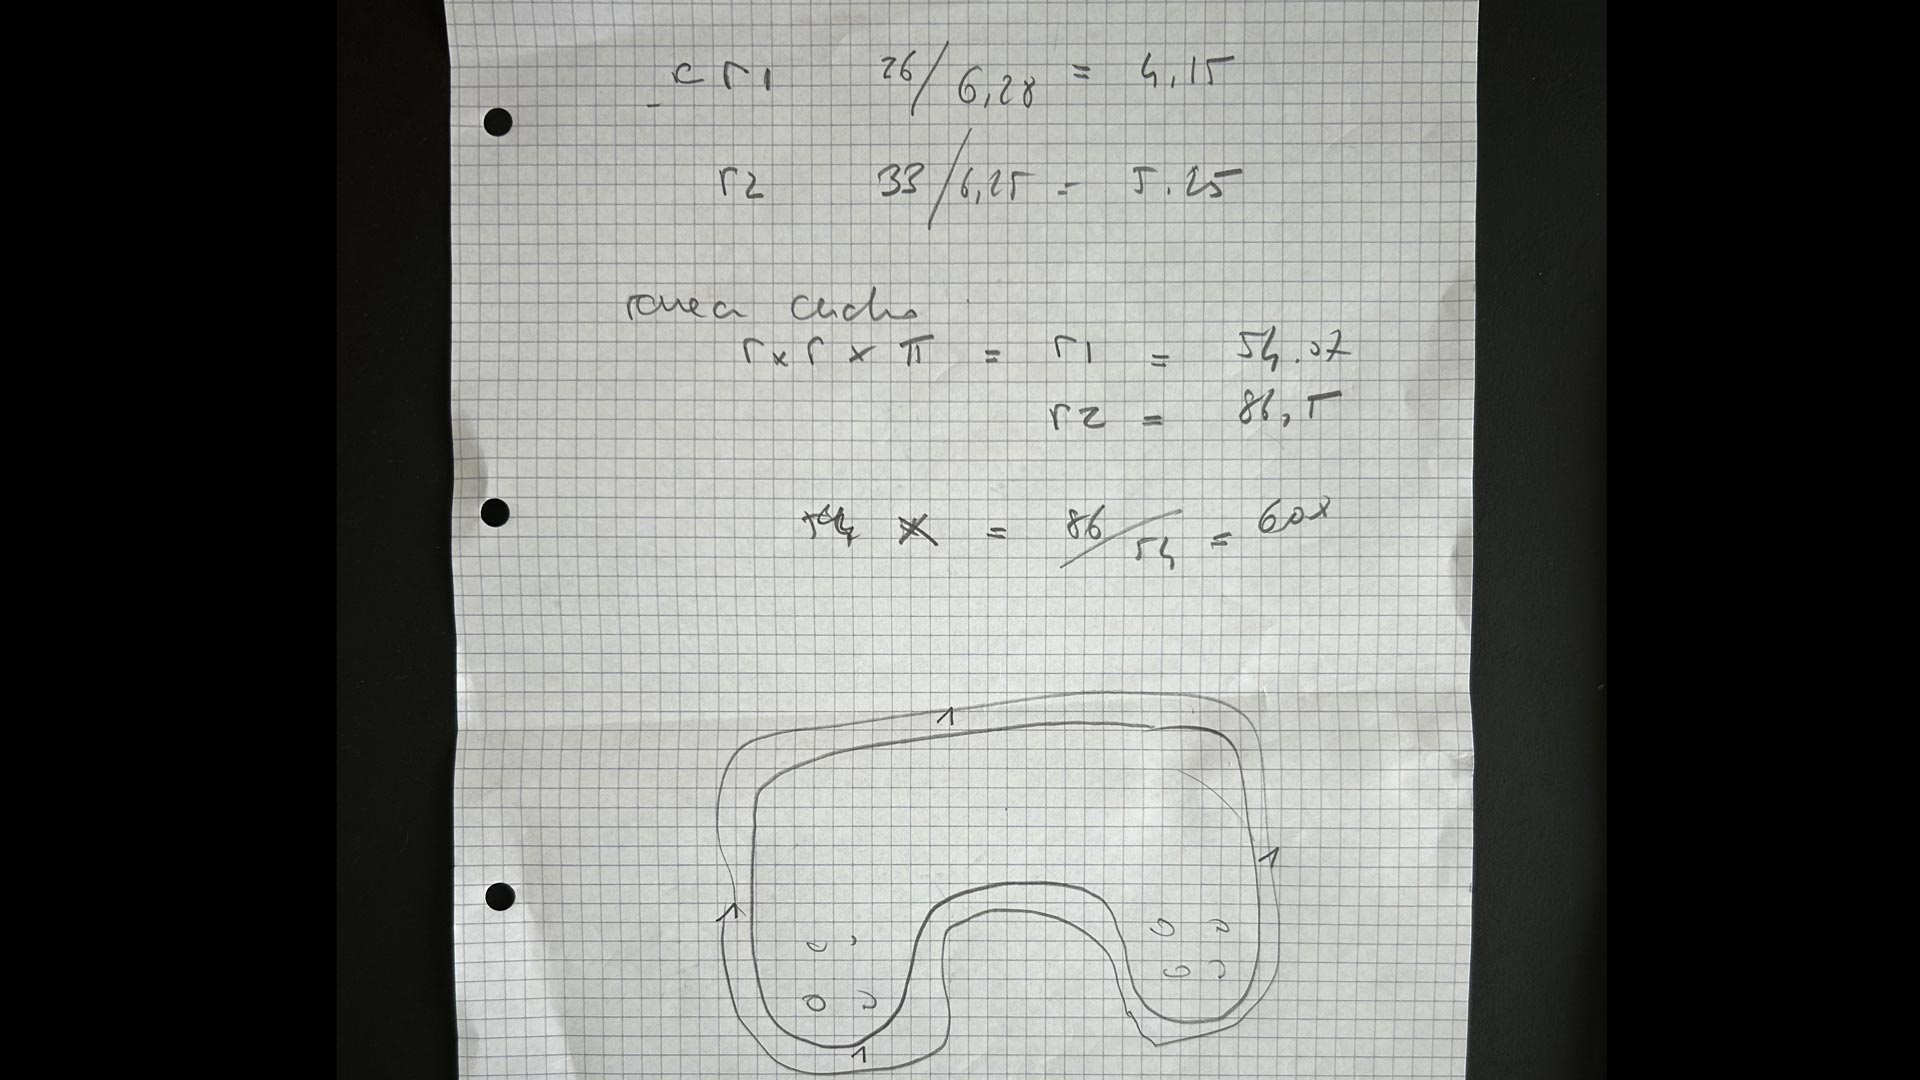 c r1 26/6,28 = 4,15
r2 33/6,25 = 5.25
area
r x r x π = r1 = 54.07
r2 = 86,5
= 86/54 = 60%
1
1
1
1